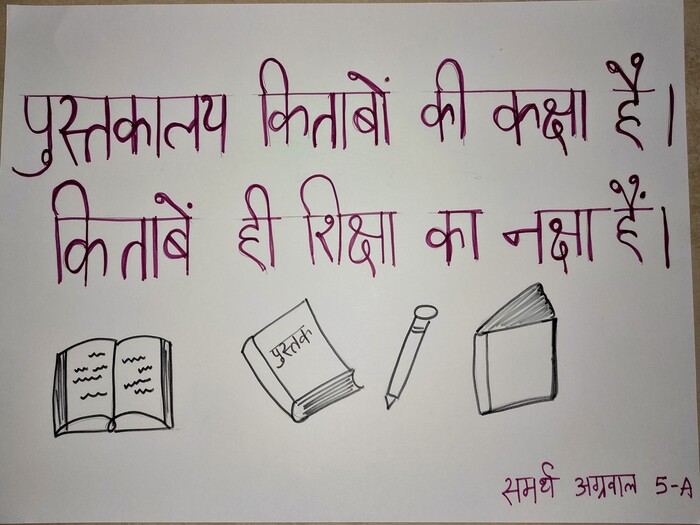 पुस्तकालय किताबों की कक्षा है।
किताबें ही शिक्षा का नक्षा हैं।
पुस्तक
समर्थ अग्रवाल 5-A